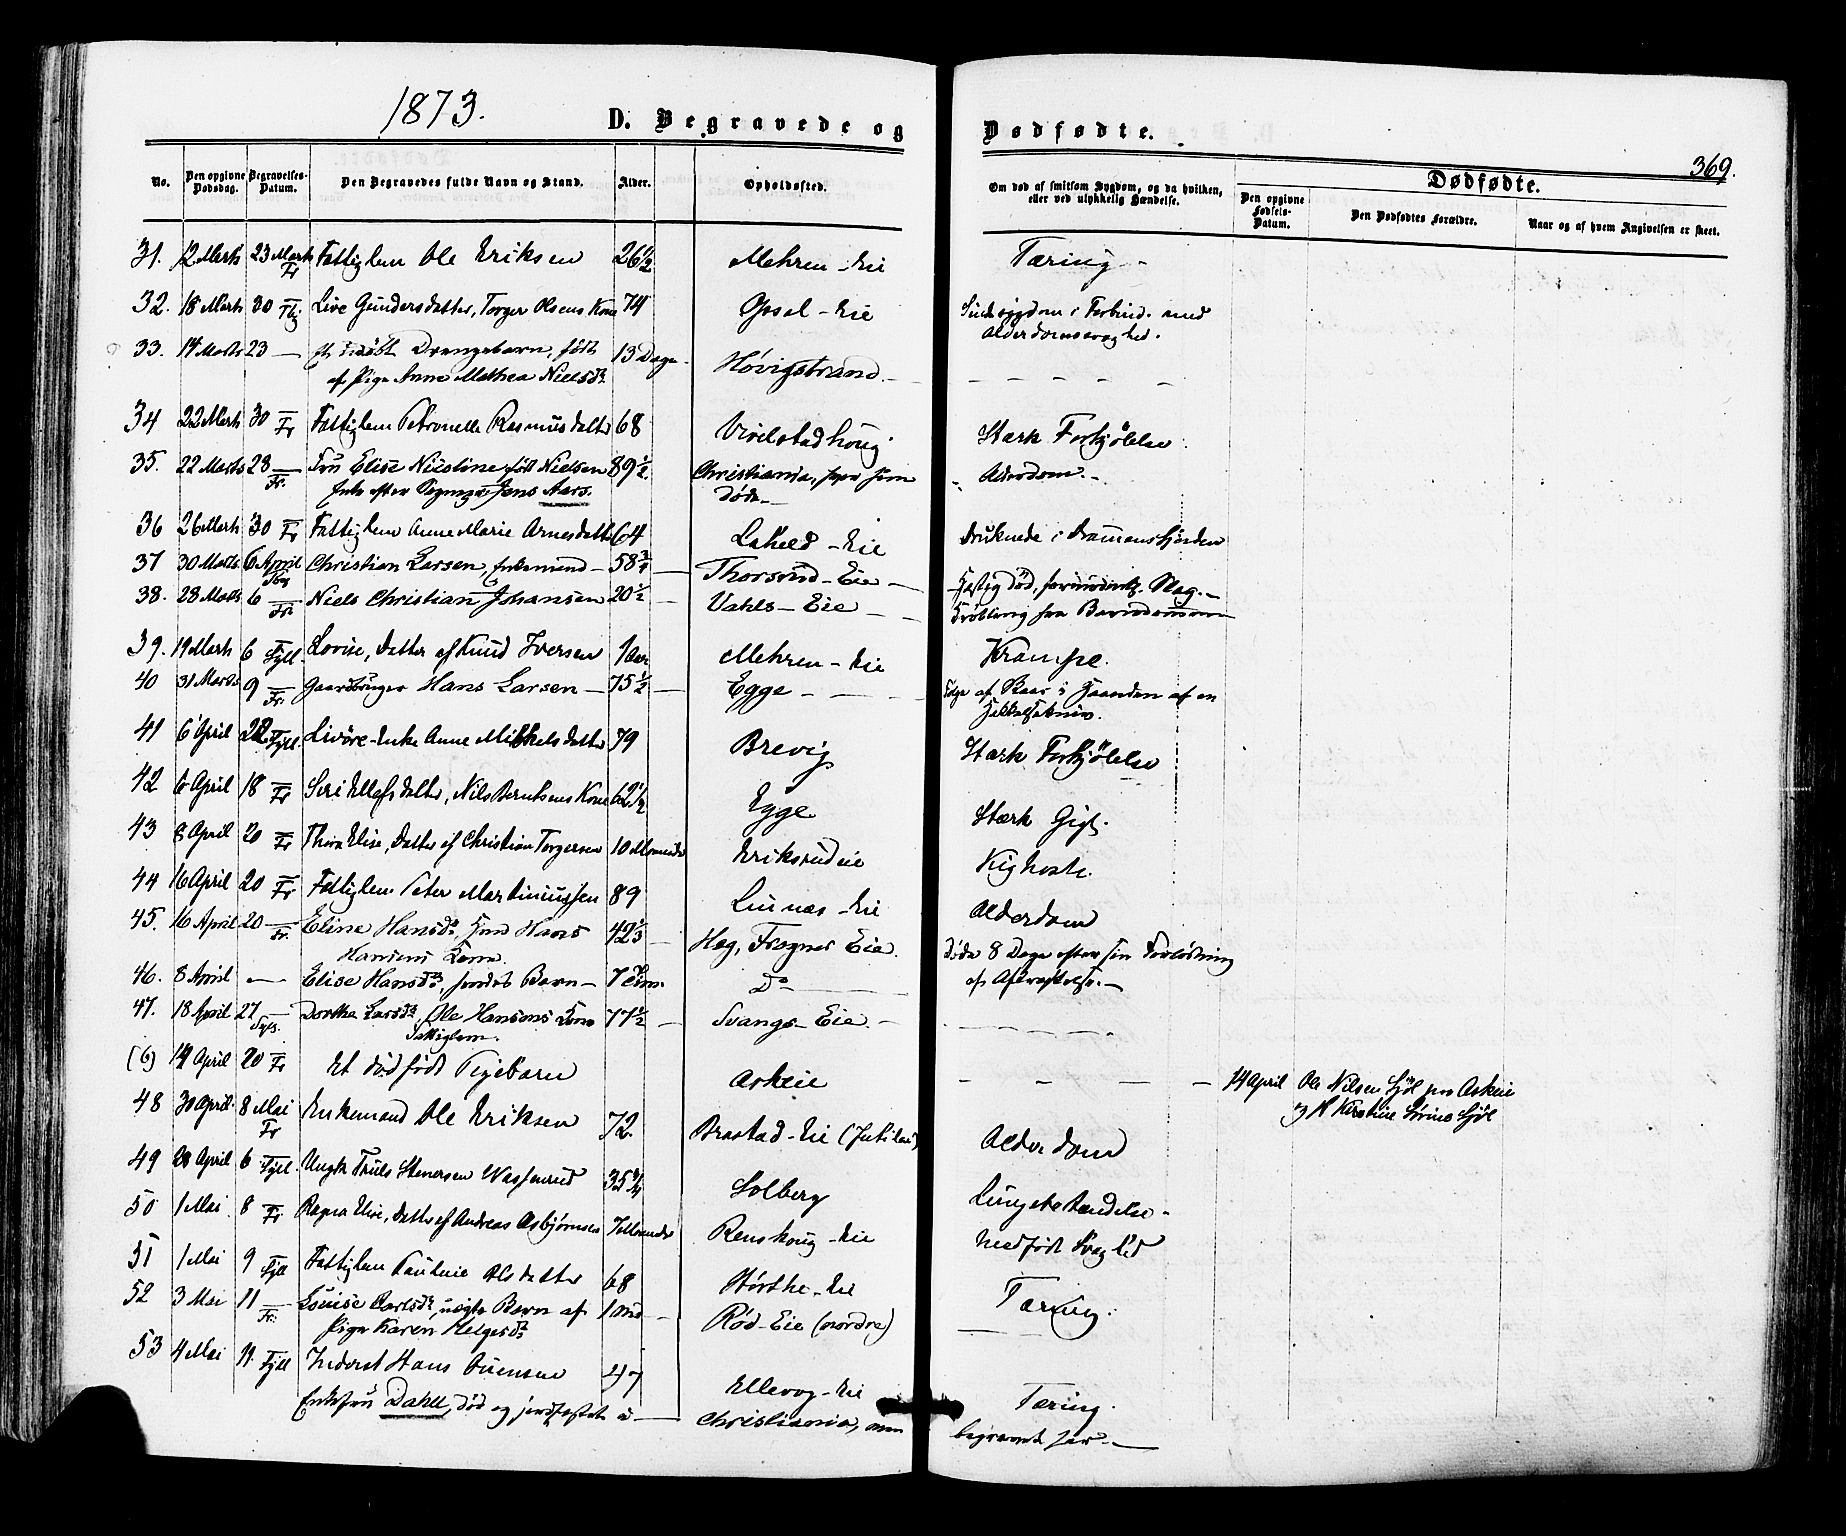 1873.
D. Begravede og
Dødfødte.
369.
No.
Den opgivne Dødsdag.
Begravelses-Datum.
Den Begravedes fulde Navn og Stand.
Alder.
Opholdssted.
Om død af smitsom Sygdom, og da hvilken, eller ved ulykkelig Hændelse.
Dødfødte.
Den opgivne Fødsels-Datum.
Den Dødfødtes Forældre.
Naar og af hvem Angivelsen er skeet.
31. 12 Marts 23 Marts Fr Fattiglem Ole Eriksen 26½ Mehren-Eie Tæring
32. 18 Marts 30 Live Gundersdatter, Torger Olsens Kone 74 Opsal-Eie i Forbind. med
Alderdomssvaghed.
33. 14 Marts 23 — et Drengebarn, født 13 Dage Høvigstrand
af Pige Anne Mathea Nielsdr
34 22 Marts 30 Fr Fattiglem Petronelle Rasmusdatter 68 Stærk Forkjølelse
35. 22 Marts 23 Fr. Fru Elise Nicoline født Nielsen 89½ Christiania, hvor hun Alderdom
Enke efter Jens Aars. døde
36 26 Marts 30 Fr Fattiglem Anne Marie Arnesdatter 64 Laheld-Eie Druknede i Dramensfjorden
37 30 Marts 6 April Christian Larsen, Enkemand 58¾ Thorsrud-Eie
38. 28 Marts 6 Fr. Niels Christian Johansen 20½ Vahls-Eie
fra Barndommen
39. 19 Marts 6 Fjell. Lovise, Datter af Knud Iversen 1 Aar Mehren-Eie Krampe.
40 31 Marts 9 Fr. Gaardbruger Hans Larsen 75½ Egge Følge af Saar i Haanden af en
41 6 April 22 Fjell. Enke Anne Mikkelsdatter 79 Brevig Stærk Forkjølelse
42 6 April 18 Fr Siri Ellefsdatter, Nils Berntsens Kone 62½ Egge Stærk Gigt.
43 8 April 20 Fr Thora Elise, Datter af Christian Torgersen 10 Maaneder Eriksrudeie Kighoste.
44 16 April 20 Fr Fattiglem Peter Martiniussen 89 Linnæs-Eie Alderdom
45. 16 April 20 Fr. Eline Hansdr, Hans 42⅓ Hæg, Frognes Eie. Døde 8 Dage efter sin Forløsning
Hansens Kone. af
46. 8 April — Elise Hansdr, Barn 7 Do
47. 18 April 27 Dorthea Larsdr, Ole Hansens Kone 77½ Svangs-Eie
Fattiglem.
(6) 14 April 20 Fr Et dødfødt Pigebarn Askeie 14 April Ole Nilsen Fjøl paa Askeie
og H Kirstine Fjøl
48 30 April 8 Mai Fr Enkemand Ole Eriksen 72. Brastad-Eie Alderdom
49 20 April 6 Fjell. Ungk Truls Stenersen 35¾ Solberg Lungebetændelse
50 1 Mai 8 Fr Ragna Elise, Datter af Andreas Asbjørnsen 7 Maaneder Renskoug-Eie Medfødt Svaghed
51 1 Mai 9 Fjell Fattiglem Pauline Olsdatter 68 Størthe-Eie Tæring.
52 3 Mai 11 Fr. Louise Carlsdr, uægte Barn af 1 Md Rød-Eie (nordre)
Pige Karen Helgesdr
53 4 Mai 11 Fjell Inderst Hans 47 Ellevog-Eie Tæring.
Enkefru Dahll, død og jordfæstet i Christiania, men begravet her